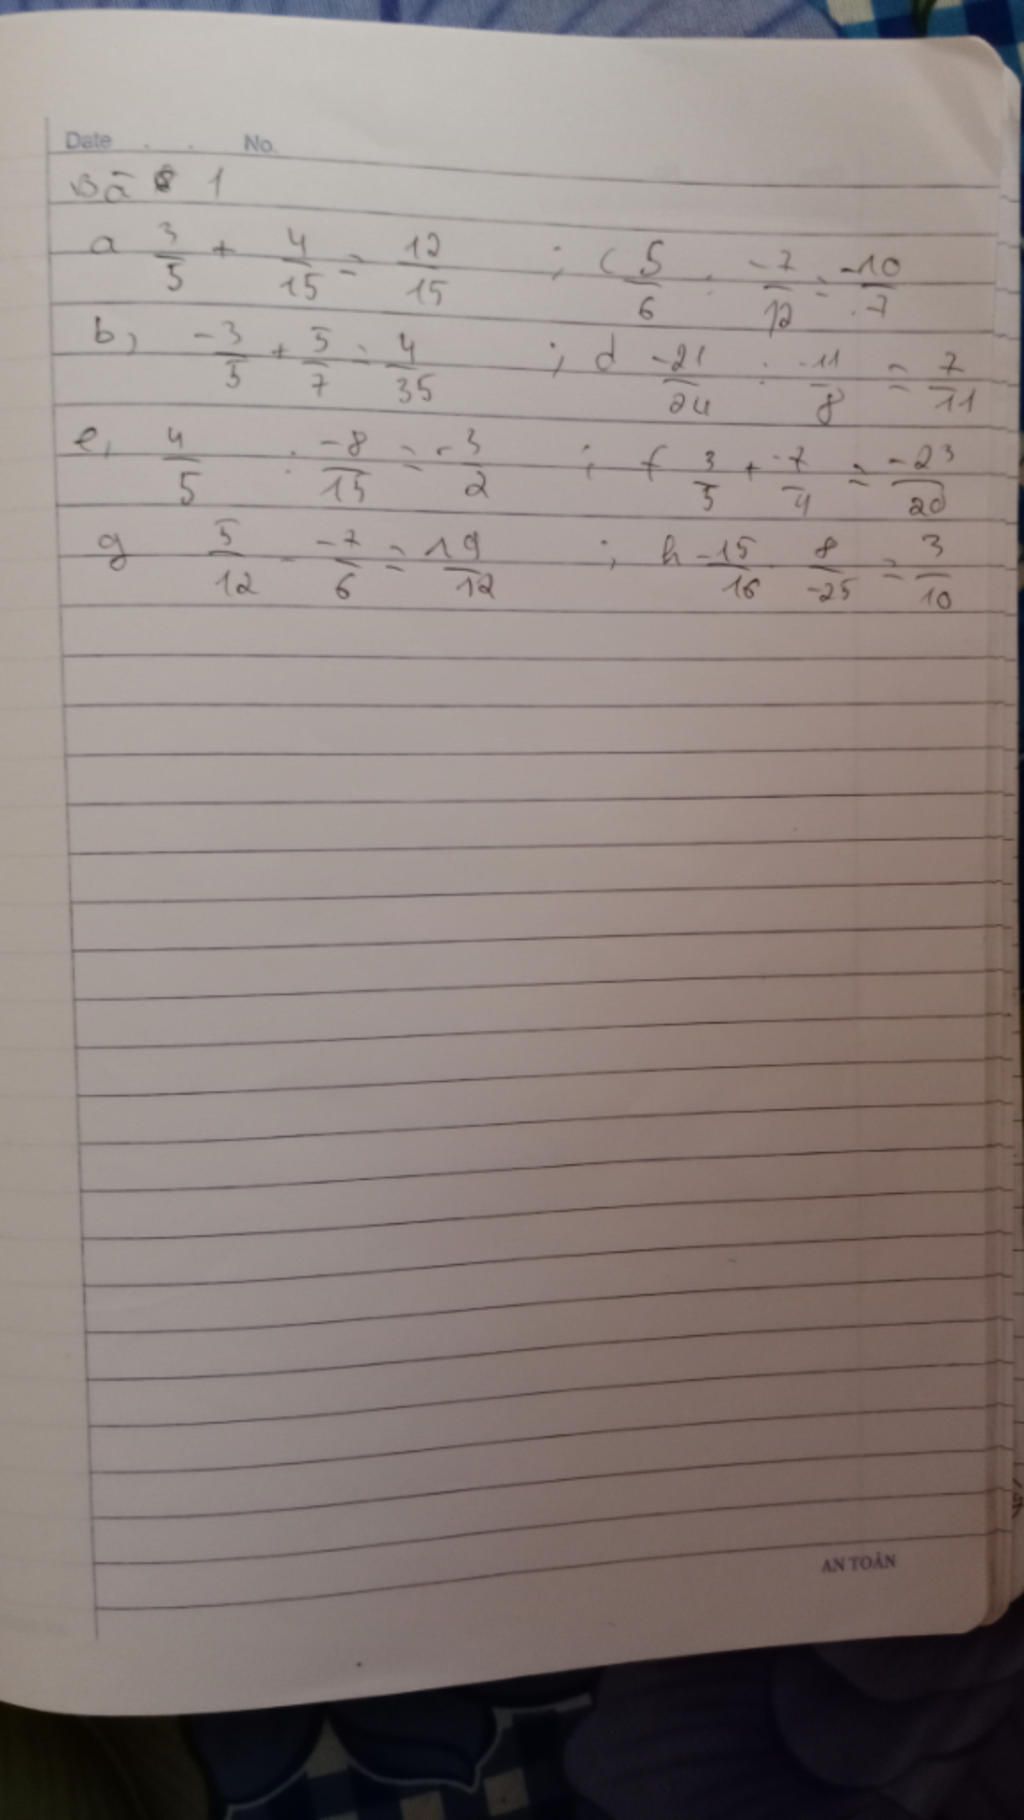 Date . . No.
Bà 8 1
a 3/5 + 4/15 = 12/15 ; c 5/6 : -7/12 = -10/7
b, -3/5 + 5/7 = 4/35 ; d -21/24 : -11/8 = 7/11
e, 4/5 : -8/15 = -3/2 ; f 3/5 + -7/4 = -23/20
g 5/12 - -7/6 = 19/12 ; h -15/16 . 8/-25 = 3/10
AN TOÀN